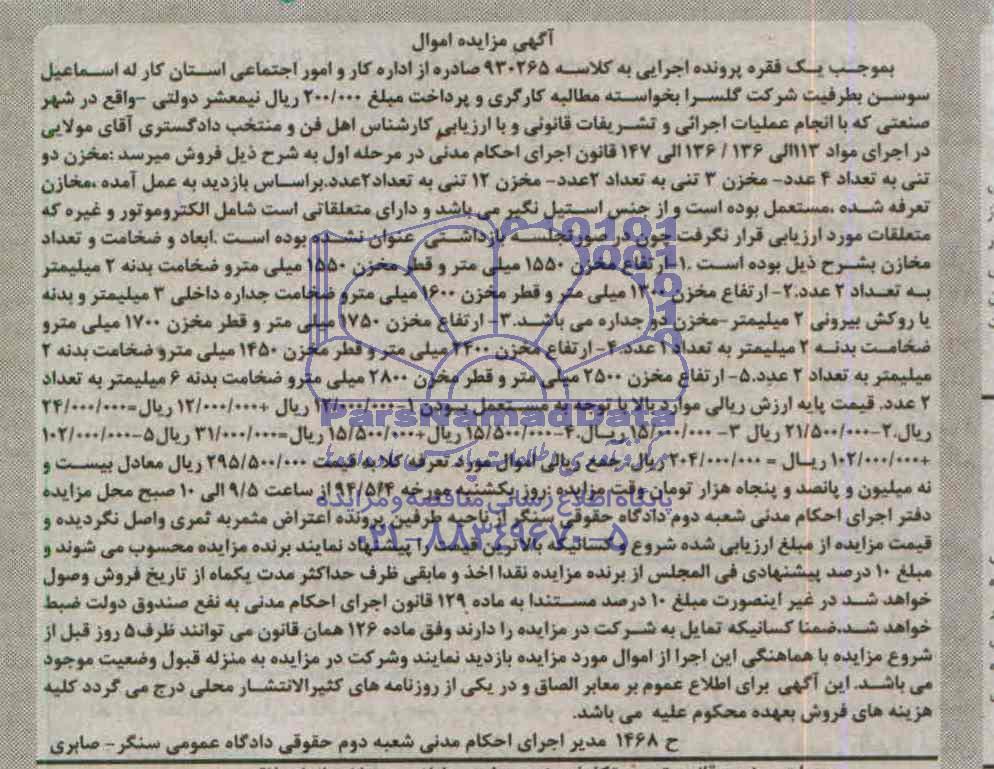 آگهی مزایده اموال
بموجب یک فقره پرونده اجرایی به کلاسه ۹۳۰۲۶۵ صادره از اداره کار و امور اجتماعی استان کار له اسماعیل
سوسن بطرفیت شرکت گلسرا بخواسته مطالبه کارگری و پرداخت مبلغ ۲۰۰/۰۰۰ ریال نیمعشر دولتی -واقع در شهر
صنعتی که با انجام عملیات اجرائی و تشریفات قانونی و با ارزیابی کارشناس اهل فن و منتخب دادگستری آقای مولایی
در اجرای مواد ۱۱۳الی ۱۳۶ / ۱۳۶ الی ۱۴۷ قانون اجرای احکام مدنی در مرحله اول به شرح ذیل فروش میرسد :مخزن دو
تنی به تعداد ۴ عدد- مخزن ۳ تنی به تعداد ۲عدد- مخزن ۱۲ تنی به تعداد۲عدد.براساس بازدید به عمل آمده ،مخازن
تعرفه شده ،مستعمل بوده است و از جنس استیل نگیر می باشد و دارای متعلقاتی است شامل الکتروموتور و غیره که
متعلقات مورد ارزیابی قرار نگرفت چون در صورتجلسه بازداشتی عنوان نشده بوده است .ابعاد و ضخامت و تعداد
مخازن بشرح ذیل بوده است .۱-ارتفاع مخزن ۱۵۵۰ میلی متر و قطر مخزن ۱۵۵۰ میلی مترو ضخامت بدنه ۲ میلیمتر
به تعداد ۲ عدد.۲- ارتفاع مخزن ۱۳۰۰ میلی متر و قطر مخزن ۱۶۰۰ میلی مترو ضخامت جداره داخلی ۳ میلیمتر و بدنه
یا روکش بیرونی ۲ میلیمتر -مخزن دو جداره می باشد.۳- ارتفاع مخزن ۱۷۵۰ میلی متر و قطر مخزن ۱۷۰۰ میلی مترو
ضخامت بدنه ۲ میلیمتر به تعداد ۱ عدد.۴- ارتفاع مخزن ۲۴۰۰ میلی متر و قطر مخزن ۱۴۵۰ میلی مترو ضخامت بدنه ۲
میلیمتر به تعداد ۲ عدد.۵- ارتفاع مخزن ۲۵۰۰ میلی متر و قطر مخزن ۲۸۰۰ میلی مترو ضخامت بدنه ۶ میلیمتر به تعداد
۲ عدد. قیمت پایه ارزش ریالی موارد بالا با توجه به مستعمل بودن ۱-۱۲/۰۰۰/۰۰۰ ریال +۱۲/۰۰۰/۰۰۰ ریال=۲۴/۰۰۰/۰۰۰
ریال.۲-۲۱/۵۰۰/۰۰۰ ریال ۳- ۱۵/۰۰۰/۰۰۰ ریال.۴-۱۵/۵۰۰/۰۰۰ ریال+۱۵/۵۰۰/۰۰۰ ریال=۳۱/۰۰۰/۰۰۰ ریال۵-۱۰۲/۰۰۰/۰۰۰
+۱۰۲/۰۰۰/۰۰۰ ریال = ۲۰۴/۰۰۰/۰۰۰ ریال جمع ریالی اموال مورد تعرفه کلا به قیمت ۲۹۵/۵۰۰/۰۰۰ ریال معادل بیست و
نه میلیون و پانصد و پنجاه هزار تومان وقت مزایده روز یکشنبه مورخه ۹۴/۵/۴ از ساعت ۹/۵ الی ۱۰ صبح محل مزایده
دفتر اجرای احکام مدنی شعبه دوم دادگاه حقوقی سنگر از ناحیه طرفین پرونده اعتراض مثمربه ثمری واصل نگردیده و
قیمت مزایده از مبلغ ارزیابی شده شروع و کسانیکه بالاترین قیمت را پیشنهاد نمایند برنده مزایده محسوب می شوند و
مبلغ ۱۰ درصد پیشنهادی فی المجلس از برنده مزایده نقدا اخذ و مابقی ظرف حداکثر مدت یکماه از تاریخ فروش وصول
خواهد شد در غیر اینصورت مبلغ ۱۰ درصد مستندا به ماده ۱۲۹ قانون اجرای احکام مدنی به نفع صندوق دولت ضبط
خواهد شد.ضمنا کسانیکه تمایل به شرکت در مزایده را دارند وفق ماده ۱۲۶ همان قانون می توانند ظرف۵ روز قبل از
شروع مزایده با هماهنگی این اجرا از اموال مورد مزایده بازدید نمایند وشرکت در مزایده به منزله قبول وضعیت موجود
می باشد. این آگهی برای اطلاع عموم بر معابر الصاق و در یکی از روزنامه های کثیرالانتشار محلی درج می گردد کلیه
هزینه های فروش بعهده محکوم علیه می باشد.
ح ۱۴۶۸ مدیر اجرای احکام مدنی شعبه دوم حقوقی دادگاه عمومی سنگر- صابری
ParsNamadData
پایگاه اطلاع رسانی مناقصه و مزایده
۰۲۱-۸۸۳۴۹۶۷۰-۵